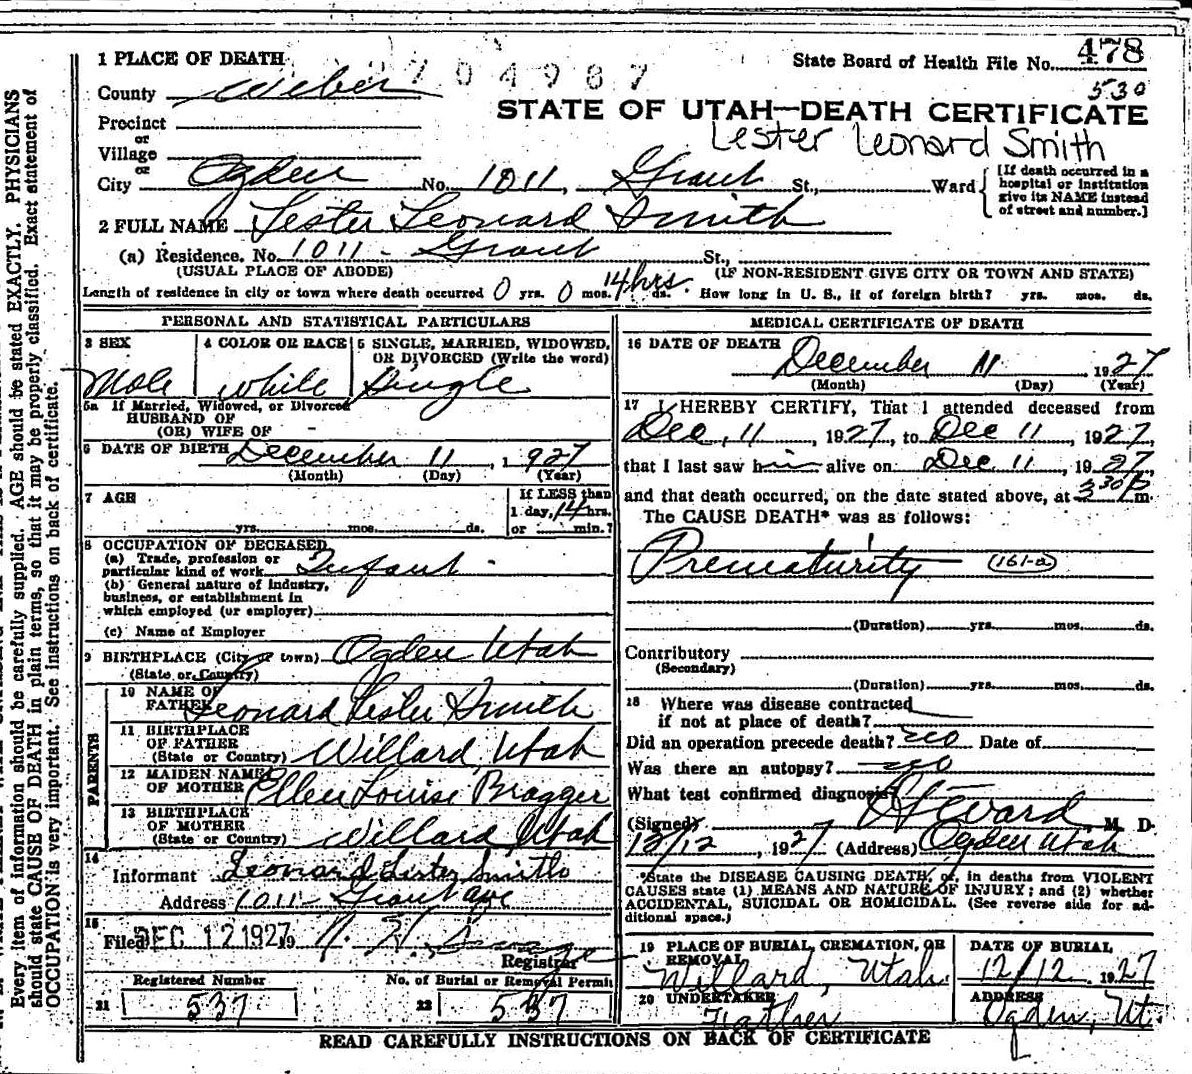 478
2704987
State Board of Health File No.
530
STATE OF UTAH—DEATH CERTIFICATE
Lester Leonard Smith
1 PLACE OF DEATH
County Weber
Precinct
or
Village
or
City Ogden No. 1011, Grant St., Ward
[If death occurred in a
hospital or institution
give its NAME instead
of street and number.]
2 FULL NAME Lester Leonard Smith
(a) Residence. No. 1011 - Grant St.,
(USUAL PLACE OF ABODE) (IF NON-RESIDENT GIVE CITY OR TOWN AND STATE)
Length of residence in city or town where death occurred 0 yrs. 0 mos. 14 hrs. ds. How long in U. S., if of foreign birth? yrs. mos. ds.
PERSONAL AND STATISTICAL PARTICULARS
3 SEX
Male
4 COLOR OR RACE
White
5 SINGLE, MARRIED, WIDOWED,
OR DIVORCED (Write the word)
Single
5a If Married, Widowed, or Divorced
HUSBAND OF
(OR) WIFE OF -
6 DATE OF BIRTH December 11, 1927
(Month) (Day) (Year)
7 AGE
yrs. mos. ds.
If LESS than
1 day, 14 hrs.
or min.?
8 OCCUPATION OF DECEASED
(a) Trade, profession or
particular kind of work Infant -
(b) General nature of Industry,
business, or establishment in
which employed (or employer)
(c) Name of Employer
9 BIRTHPLACE (City or town) Ogden Utah
(State or Country)
PARENTS
10 NAME OF
FATHER Leonard Lester Smith
11 BIRTHPLACE
OF FATHER
(State or Country) Willard, Utah
12 MAIDEN NAME
OF MOTHER Ellen Louise Bragger
13 BIRTHPLACE
OF MOTHER
(State or Country) Willard Utah
14
Informant Leonard Lister Smith
Address 1011 - Grant ave
15
Filed DEC 12 1927 19
Registrar
Registered Number
21 537
No. of Burial or Removal Permit
22 537
MEDICAL CERTIFICATE OF DEATH
16 DATE OF DEATH
December 11 1927
(Month) (Day) (Year)
17 I HEREBY CERTIFY, That I attended deceased from
Dec, 11, 1927, to Dec 11, 1927,
that I last saw him alive on Dec 11, 1927
and that death occurred, on the date stated above, at 3 30 P m.
The CAUSE DEATH* was as follows:
Prematurity (161-a)
(Duration) yrs. mos. ds.
Contributory
(Secondary)
(Duration) yrs. mos. ds.
18 Where was disease contracted
if not at place of death?
Did an operation precede death? no Date of
Was there an autopsy? no
What test confirmed diagnosis?
(Signed) Ward, M. D.
12/12, 1927 (Address) Ogden Utah
*State the DISEASE CAUSING DEATH, or, in deaths from VIOLENT
CAUSES state (1) MEANS AND NATURE OF INJURY; and (2) whether
ACCIDENTAL, SUICIDAL OR HOMICIDAL. (See reverse side for ad-
ditional space.)
19 PLACE OF BURIAL, CREMATION, OR
REMOVAL
Willard, Utah.
DATE OF BURIAL
12/12 1927
20 UNDERTAKER
Father
ADDRESS
Ogden, Ut.
READ CAREFULLY INSTRUCTIONS ON BACK OF CERTIFICATE
Every item of information should be carefully supplied. AGE should be stated EXACTLY. PHYSICIANS
should state CAUSE OF DEATH in plain terms, so that it may be properly classified. Exact statement of
OCCUPATION is very important. See instructions on back of certificate.